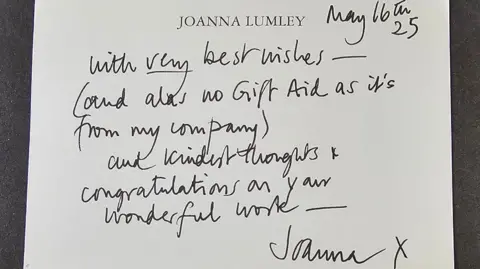 May 16th
25
JOANNA LUMLEY
with very best wishes —
(and alas no Gift Aid as it's
from my company)
and kindest thoughts x
congratulations on your
wonderful work —
Joanna X